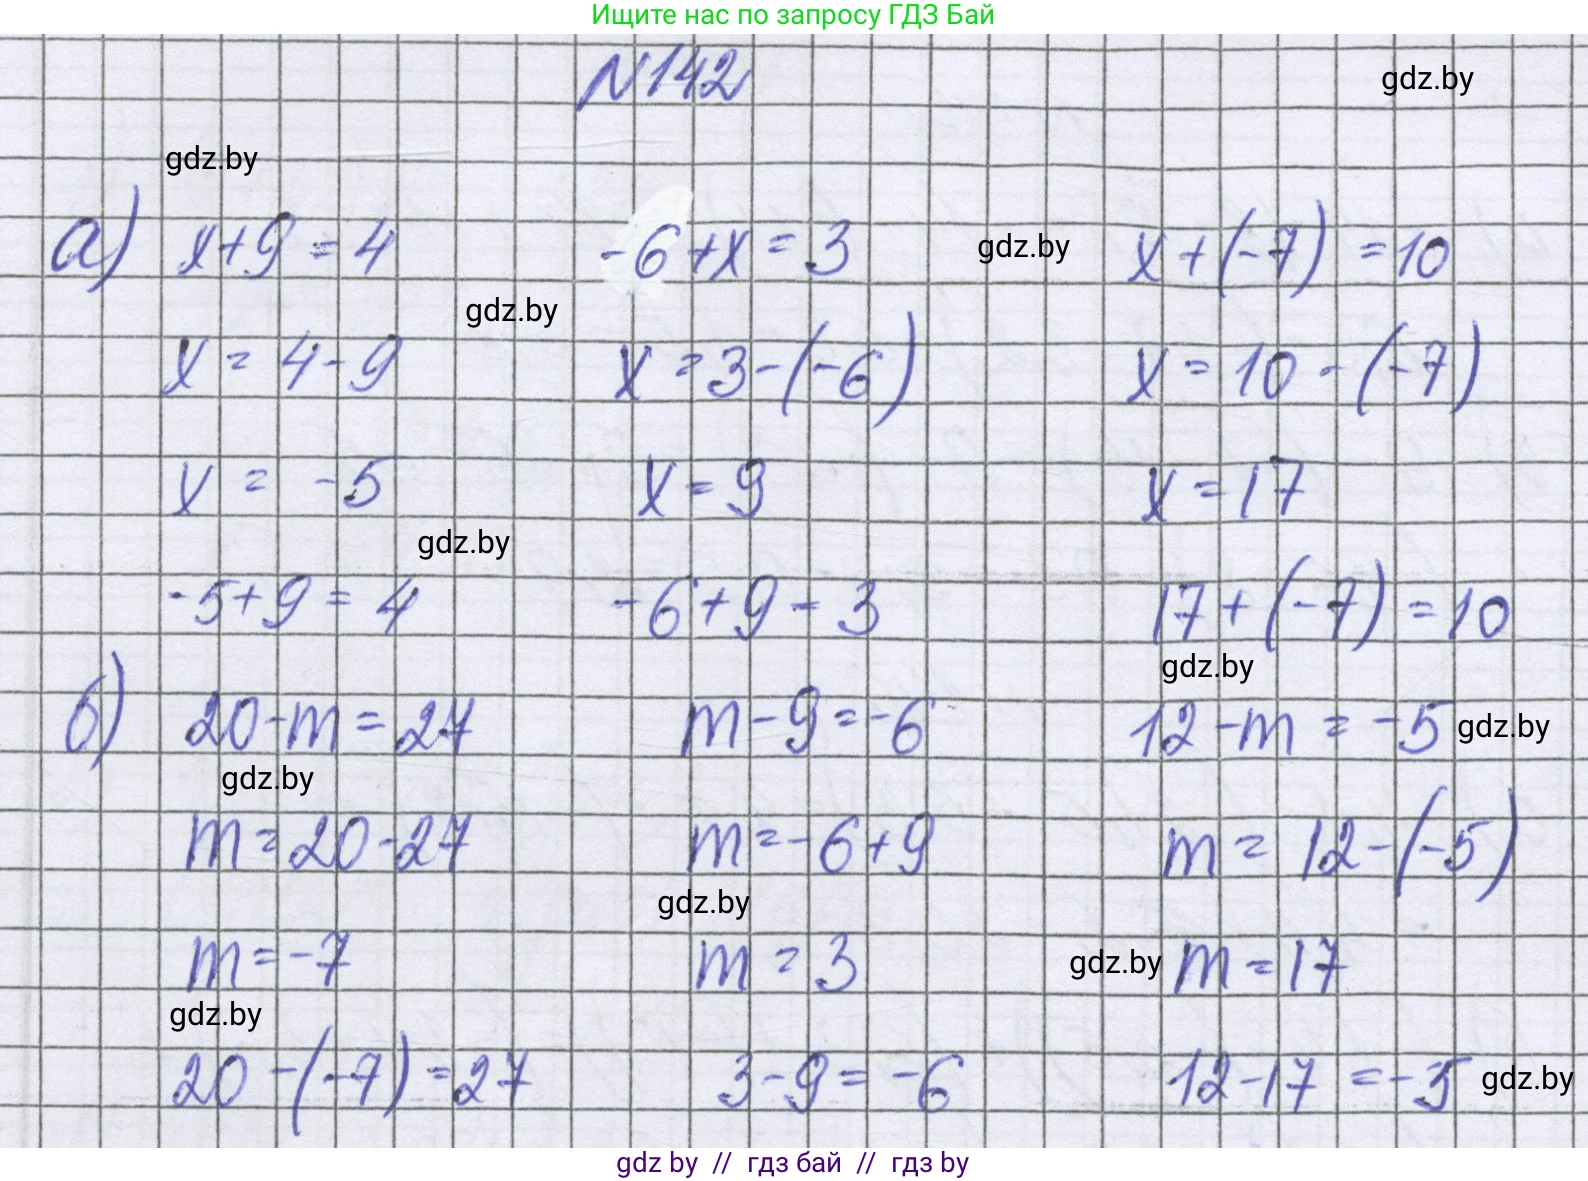 Ищите нас по запросу ГДЗ Бай
N142
gdz.by
gdz.by
а) x+9=4 -6+x=3 gdz.by x+(-7)=10
gdz.by
x=4-9 x=3-(-6) x=10-(-7)
x=-5 x=9 x=17
gdz.by
-5+9=4 -6+9=3 17+(-7)=10
gdz.by
б) 20-m=27 m-9=-6 12-m=-5 gdz.by
gdz.by
m=20-27 m=-6+9 m=12-(-5)
gdz.by
m=-7 m=3 gdz.by m=17
gdz.by
20-(-7)=27 3-9=-6 12-17=-5 gdz.by
gdz by // гдз бай // гдз by